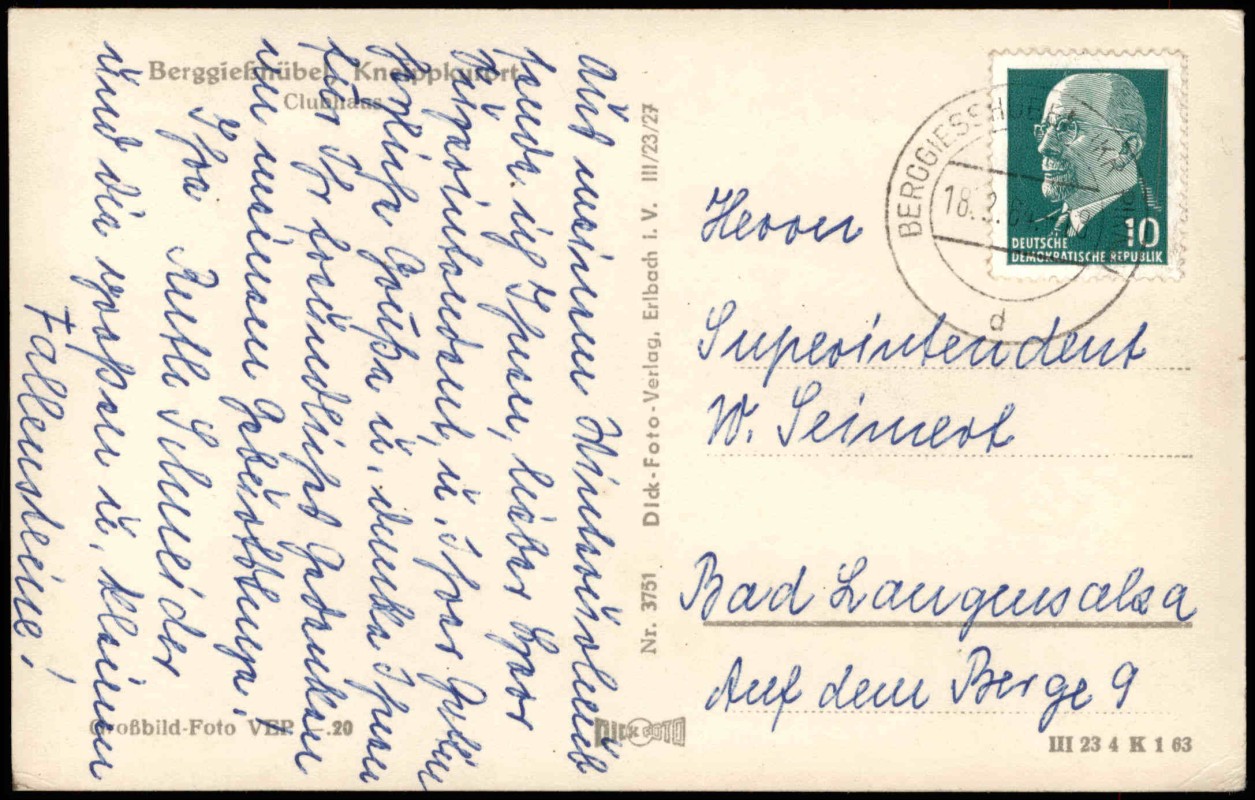 Berggießhübel, Kneippkurort
Clubhaus
Aus meinem Winterurlaub
sende ich Ihnen, lieber Herr
Superintendent, u. Ihrer
herzliche Grüße u. danke Ihnen
für Ihr freundliches Gedenken
zu meinem Geburtstage.
Ihre Ruth Schneider
und die großen u. kleinen
Fallensteine!
Großbild-Foto VEP .20
Nr. 3751 Dick-Foto-Verlag, Erlbach i. V. III/23/27
DICK FOTO
BERGGIESSHÜBEL
18.2.64
d
DEUTSCHE
DEMOKRATISCHE REPUBLIK
10
Herrn
Superintendent
W. Seimert
Bad Langensalza
Auf dem Berge 9
III 23 4 K 1 63